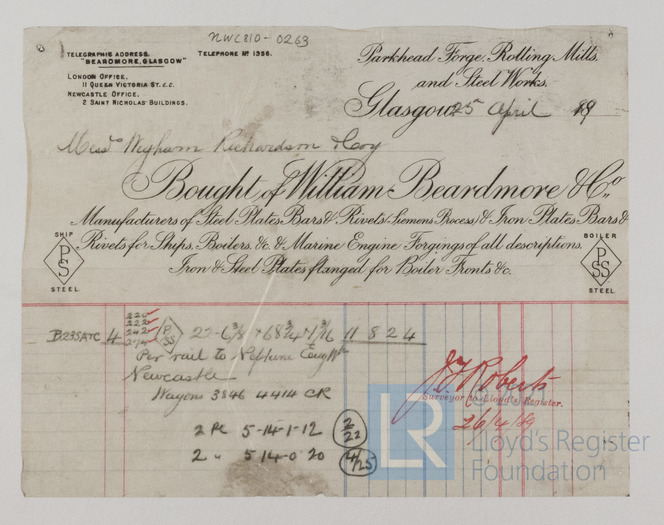 NWC810-0263
TELEGRAPHIC ADDRESS.
"BEARDMORE, GLASGOW"
TELEPHONE No 1356.
LONDON OFFICE,
11 QUEEN VICTORIA ST. E.C.
NEWCASTLE OFFICE,
2 SAINT NICHOLAS' BUILDINGS.
Parkhead Forge, Rolling Mills,
and Steel Works.
Glasgow 25 April 89
Messrs Wigham Richardson & Coy
Bought of William Beardmore & Co.,
Manufacturers of Steel Plates, Bars & Rivets (Siemens Process) & Iron Plates, Bars &
Rivets for Ships, Boilers, &c. & Marine Engine Forgings of all descriptions.
Iron & Steel Plates flanged for Boiler Fronts &c.
SHIP
PS
STEEL
BOILER
PSS
STEEL.
220
222
242
274
B235ATC 4 P SS 22-6 3/8 × 68 3/4 × 1 3/16 11 8 2 4
Per rail to Neptune Eng Wk
Newcastle
Wagons 3846 4414 CR
2 Pc 5-14-1-12 2/22
2 " 5-14-0 20 4/25
Roberts
Surveyor to Lloyd's Register.
26/4/89
LR
Lloyd's Register
Foundation